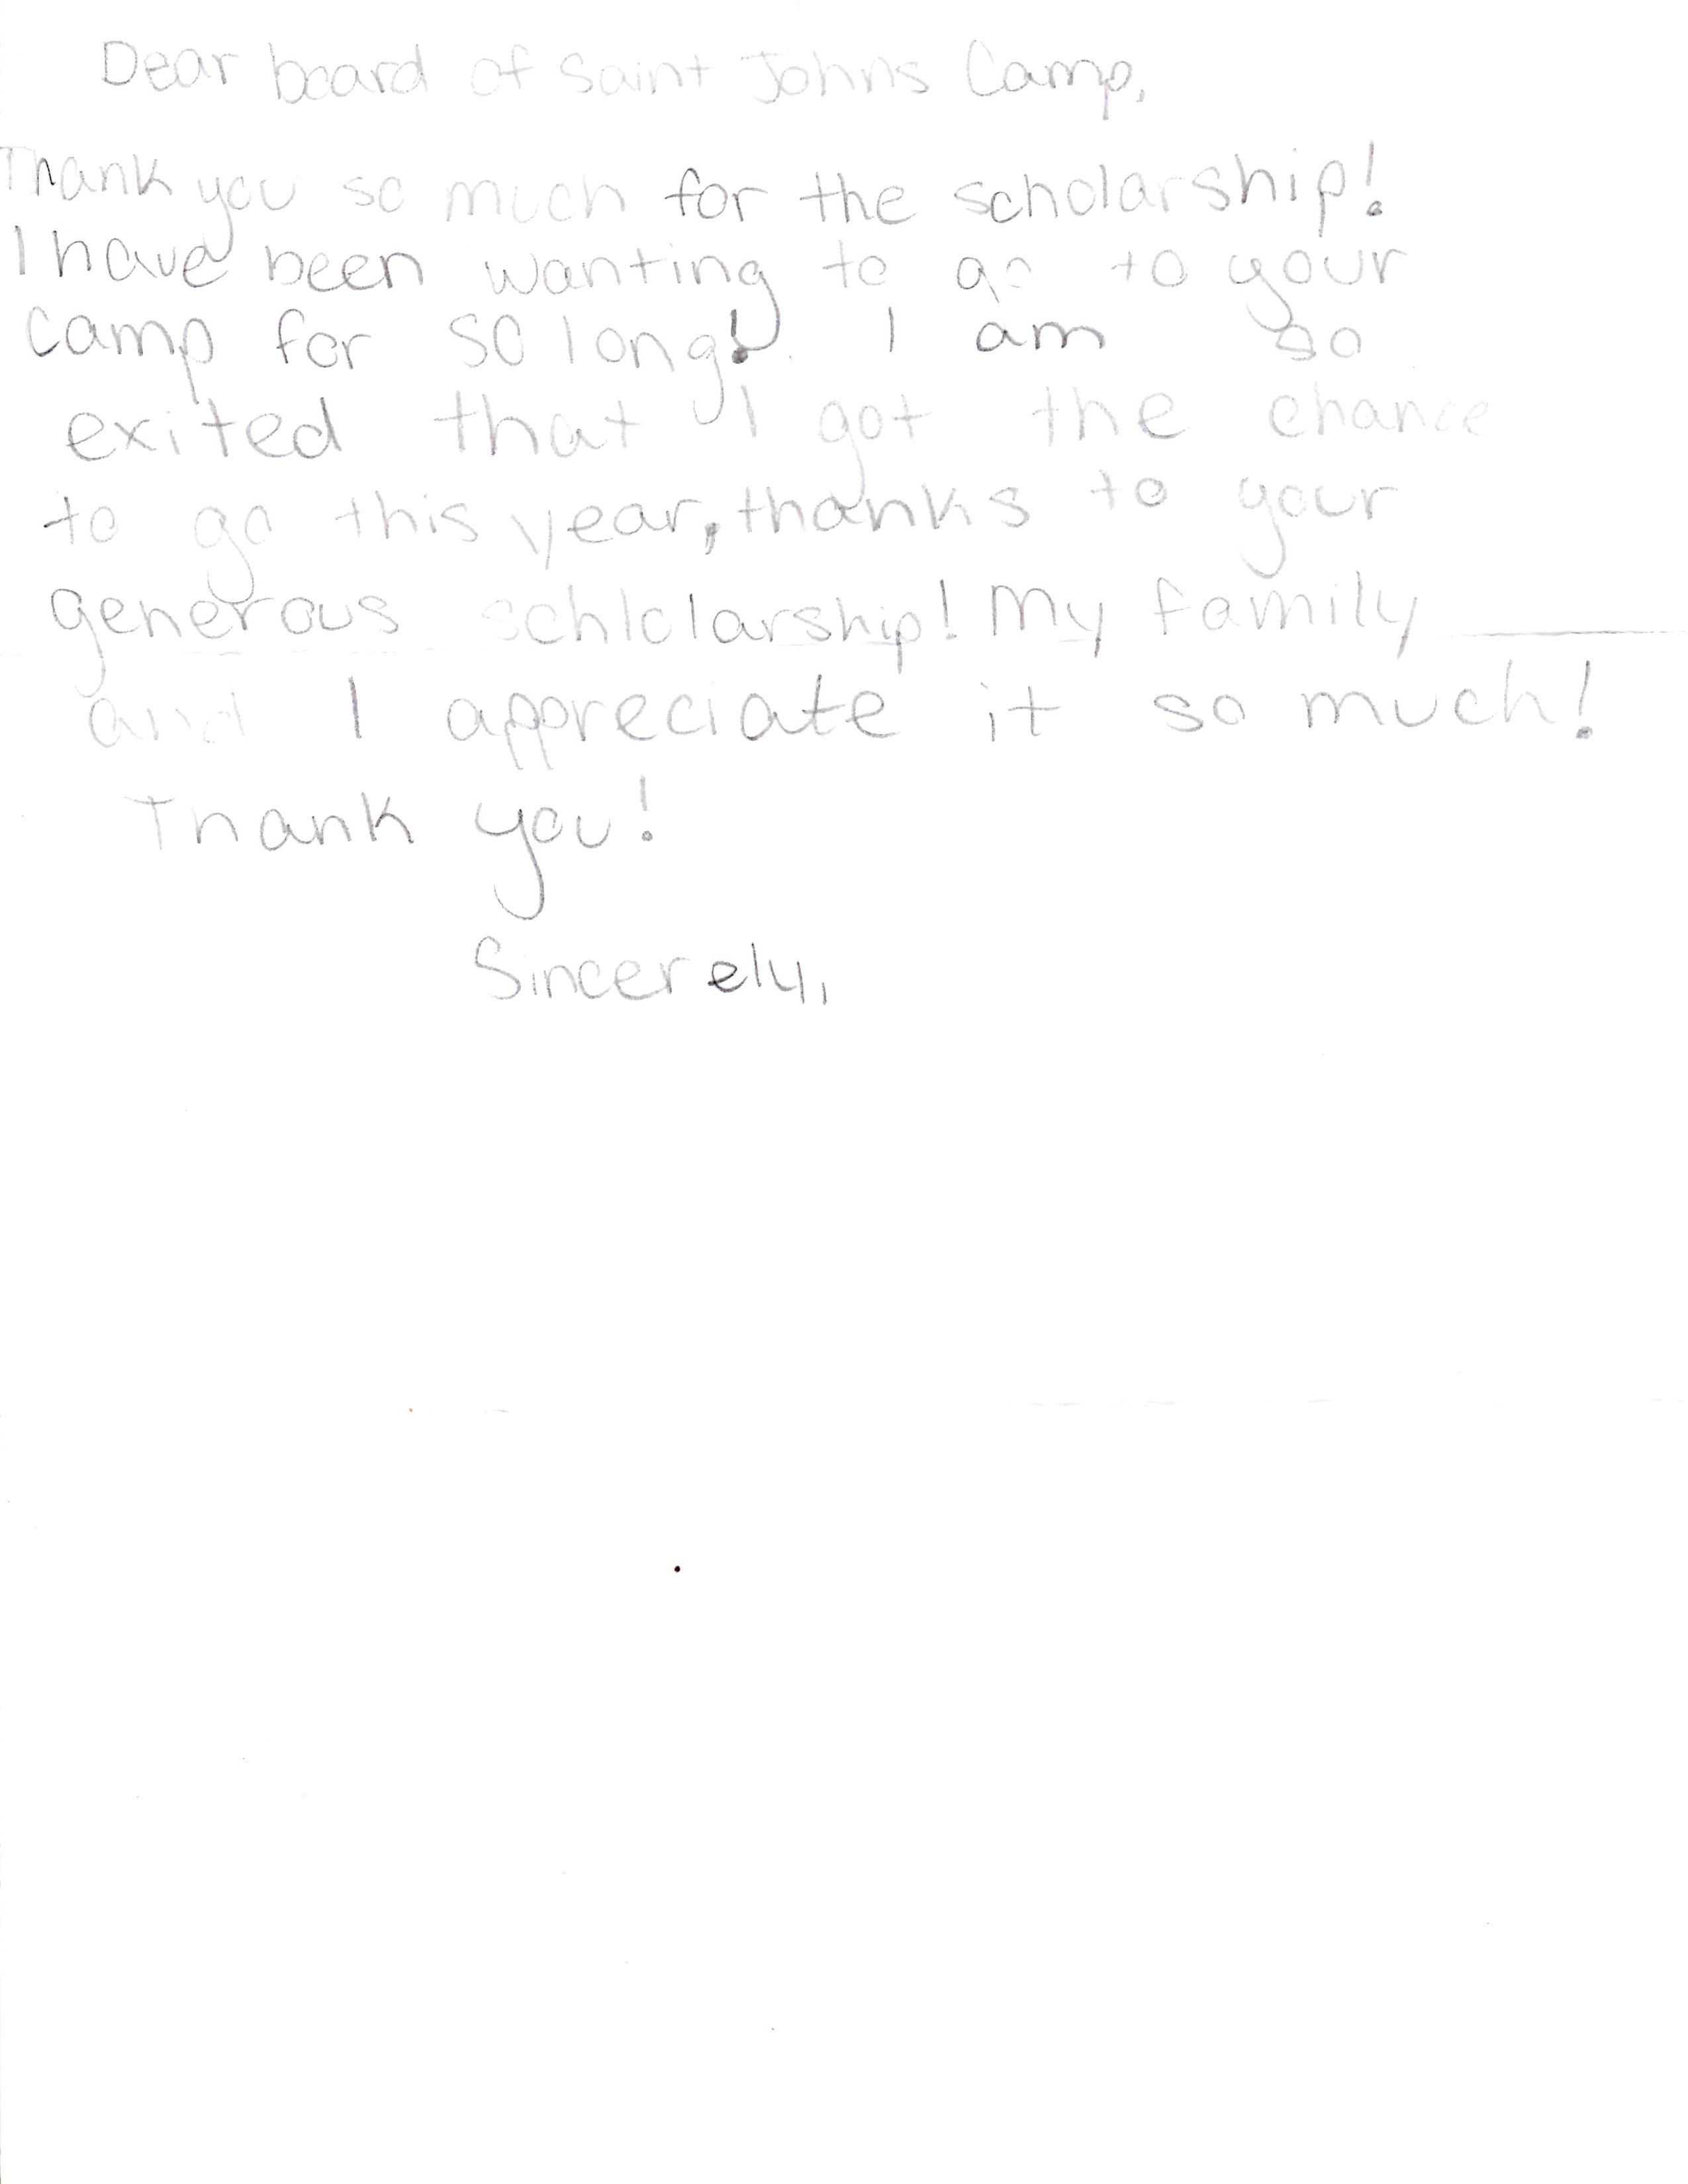 Dear board of Saint Johns Camp,
Thank you so much for the scholarship!
I have been wanting to go to your
camp for so long! I am so
exited that I got the chance
to go this year, thanks to your
generous schlolarship! My family
and I appreciate it so much!
Thank you!
Sincerely,